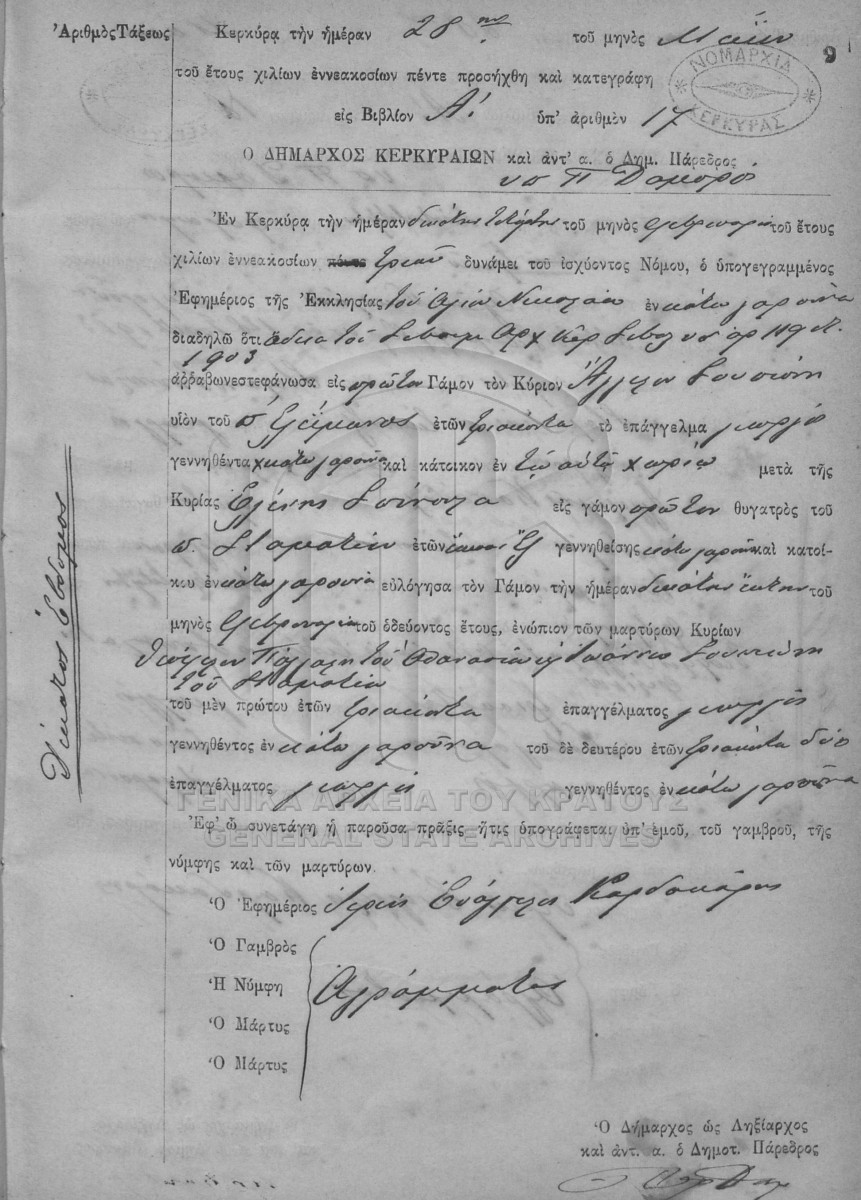 Ἀριθμὸς Τάξεως
Κερκύρᾳ τὴν ἡμέραν 28 τοῦ μηνὸς Μαΐου
9
τοῦ ἔτους χιλίων ἐννεακοσίων πέντε προσήχθη καὶ κατεγράφη
ΝΟΜΑΡΧΙΑ ΚΕΡΚΥΡΑΣ
εἰς Βιβλίον Α! ὑπ' ἀριθμὸν 17
Ὁ ΔΗΜΑΡΧΟΣ ΚΕΡΚΥΡΑΙΩΝ καὶ ἀντ' α. ὁ Δημ. Πάρεδρος
Ἐν Κερκύρᾳ τὴν ἡμέραν δεκάτην τετάρτην τοῦ μηνὸς Φεβρουαρίου τοῦ ἔτους
χιλίων ἐννεακοσίων πέντε τριῶν δυνάμει τοῦ ἰσχύοντος Νόμου, ὁ ὑπογεγραμμένος
Ἐφημέριος τῆς Ἐκκλησίας τοῦ Ἁγίου Νικολάου ἐν κάτω γαρούνα
διαδηλῶ ὅτι ἀδεία τοῦ Σεβασμ Αρχ Κερ 119
1903
ἀῤῥαβωνεστεφάνωσα εἰς πρῶτον Γάμον τὸν Κύριον Ἄγγελον
υἱὸν τοῦ ἐτῶν τριάκοντα τὸ ἐπάγγελμα γεωργὸ
γεννηθέντα κάτω γαρούνα καὶ κάτοικον ἐν τῷ αὐτῷ χωρίῳ μετὰ τῆς
Κυρίας Ἑλένης εἰς γάμον πρῶτον θυγατρὸς τοῦ
π. Σταματίου ἐτῶν εἴκοσι ἓξ γεννηθείσης κάτω γαρούνα καὶ κατοί-
κου ἐν κάτω γαρούνα εὐλόγησα τὸν Γάμον τὴν ἡμέραν δεκάτην ἕκτην τοῦ
μηνὸς Φεβρουαρίου τοῦ ὁδεύοντος ἔτους, ἐνώπιον τῶν μαρτύρων Κυρίων
τοῦ Αθανασίου Ἰωάννου
τοῦ Σταματίου
τοῦ μὲν πρώτου ἐτῶν τριάκοντα ἐπαγγέλματος γεωργὸς
γεννηθέντος ἐν κάτω γαρούνα τοῦ δὲ δευτέρου ἐτῶν τριάκοντα δύο
ἐπαγγέλματος γεωργὸς γεννηθέντος ἐν κάτω γαρούνα
ΓΕΝΙΚΑ ΑΡΧΕΙΑ ΤΟΥ ΚΡΑΤΟΥΣ
Ἐφ' ᾧ συνετάγη ἡ παροῦσα πρᾶξις ἥτις ὑπογράφεται ὑπ' ἐμοῦ, τοῦ γαμβροῦ, τῆς
GENERAL STATE ARCHIVES
νύμφης καὶ τῶν μαρτύρων.
Ὁ Ἐφημέριος Ἱερεὺς Εὐάγγελος
Ὁ Γαμβρὸς
Ἡ Νύμφη Ἀγράμματοι
Ὁ Μάρτυς
Ὁ Μάρτυς
Δέκατος ἕβδομος
Ὁ Δήμαρχος ὡς Ληξίαρχος
καὶ ἀντ. α. ὁ Δημοτ. Πάρεδρος